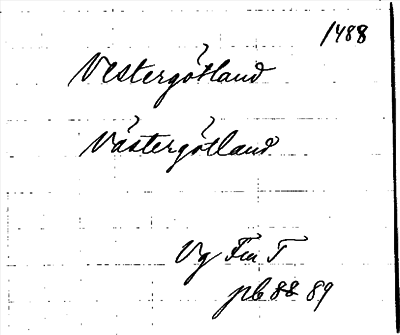 1488
Vestergötland
Västergötland
Vg Fru T
pb 88 89